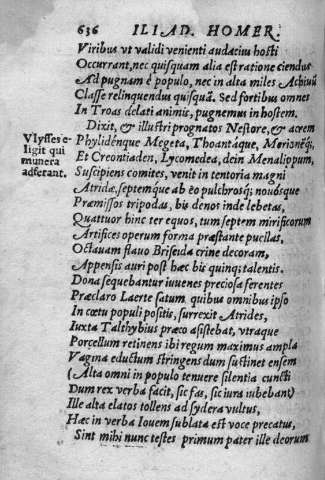 636 ILIAD. HOMER.
Viribus vt validi venienti audacius hosti
Occurrant, nec quisquam alia est ratione ciendus
Ad pugnam è populo, nec in alta miles Achiuũ
Classe relinquendus quisquã. Sed fortibus omnes
In Troas delati animis, pugnemus in hostem.
Dixit, & illustri prognatos Nestore, & acrem
Vlysses e-
ligit qui
munera
adferant.
Phylidénque Megeta, Thoantáque, Merionẽq;
Et Creontiaden, Lycomedea, dein Menalippum,
Suscipiens comites, venit in tentoria magni
Atridæ, septemque ab eo pulchrosq; nouósque
Præmissos tripodas, bis denos inde lebetas,
Quattuor hinc ter equos, tum septem mirificorum
Artifices operum forma præstante puellas,
Octauam flauo Briseida crine decoram,
Appensis auri post hæc bis quinq; talentis.
Dona sequebantur iuuenes preciosa ferentes
Præclaro Laerte satum quibus omnibus ipso
In cœtu populi positis, surrexit Atrides,
Iuxta Talthybius præco asistebat, vtraque
Porcellum retinens ibi regum maximus ampla
Vagina eductum stringens dum sustinet ensem
(Alta omni in populo tenuere silentia cuncti
Dum rex verba facit, sic fas, sic iura iubebant)
Ille alta elatos tollens ad sydera vultus,
Hæc in verba Iouem sublata est voce precatus,
Sint mihi nunc testes primum pater ille deorum